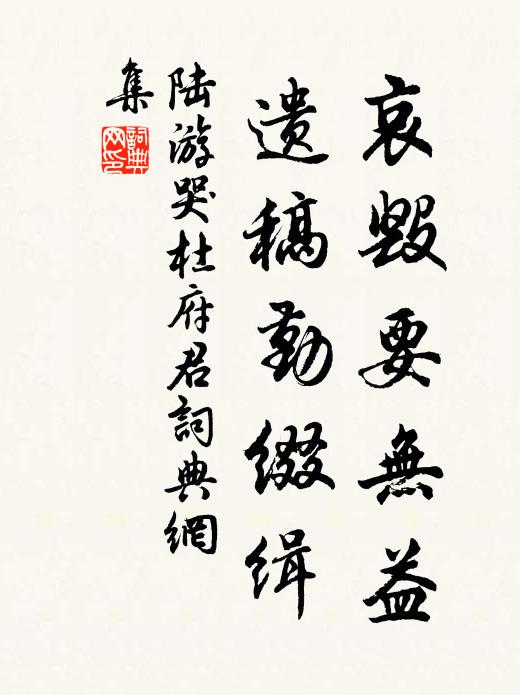 哀毁要無益
遺稿勤綴緝
陸游哭杜府君詞典網
集
詞典網印